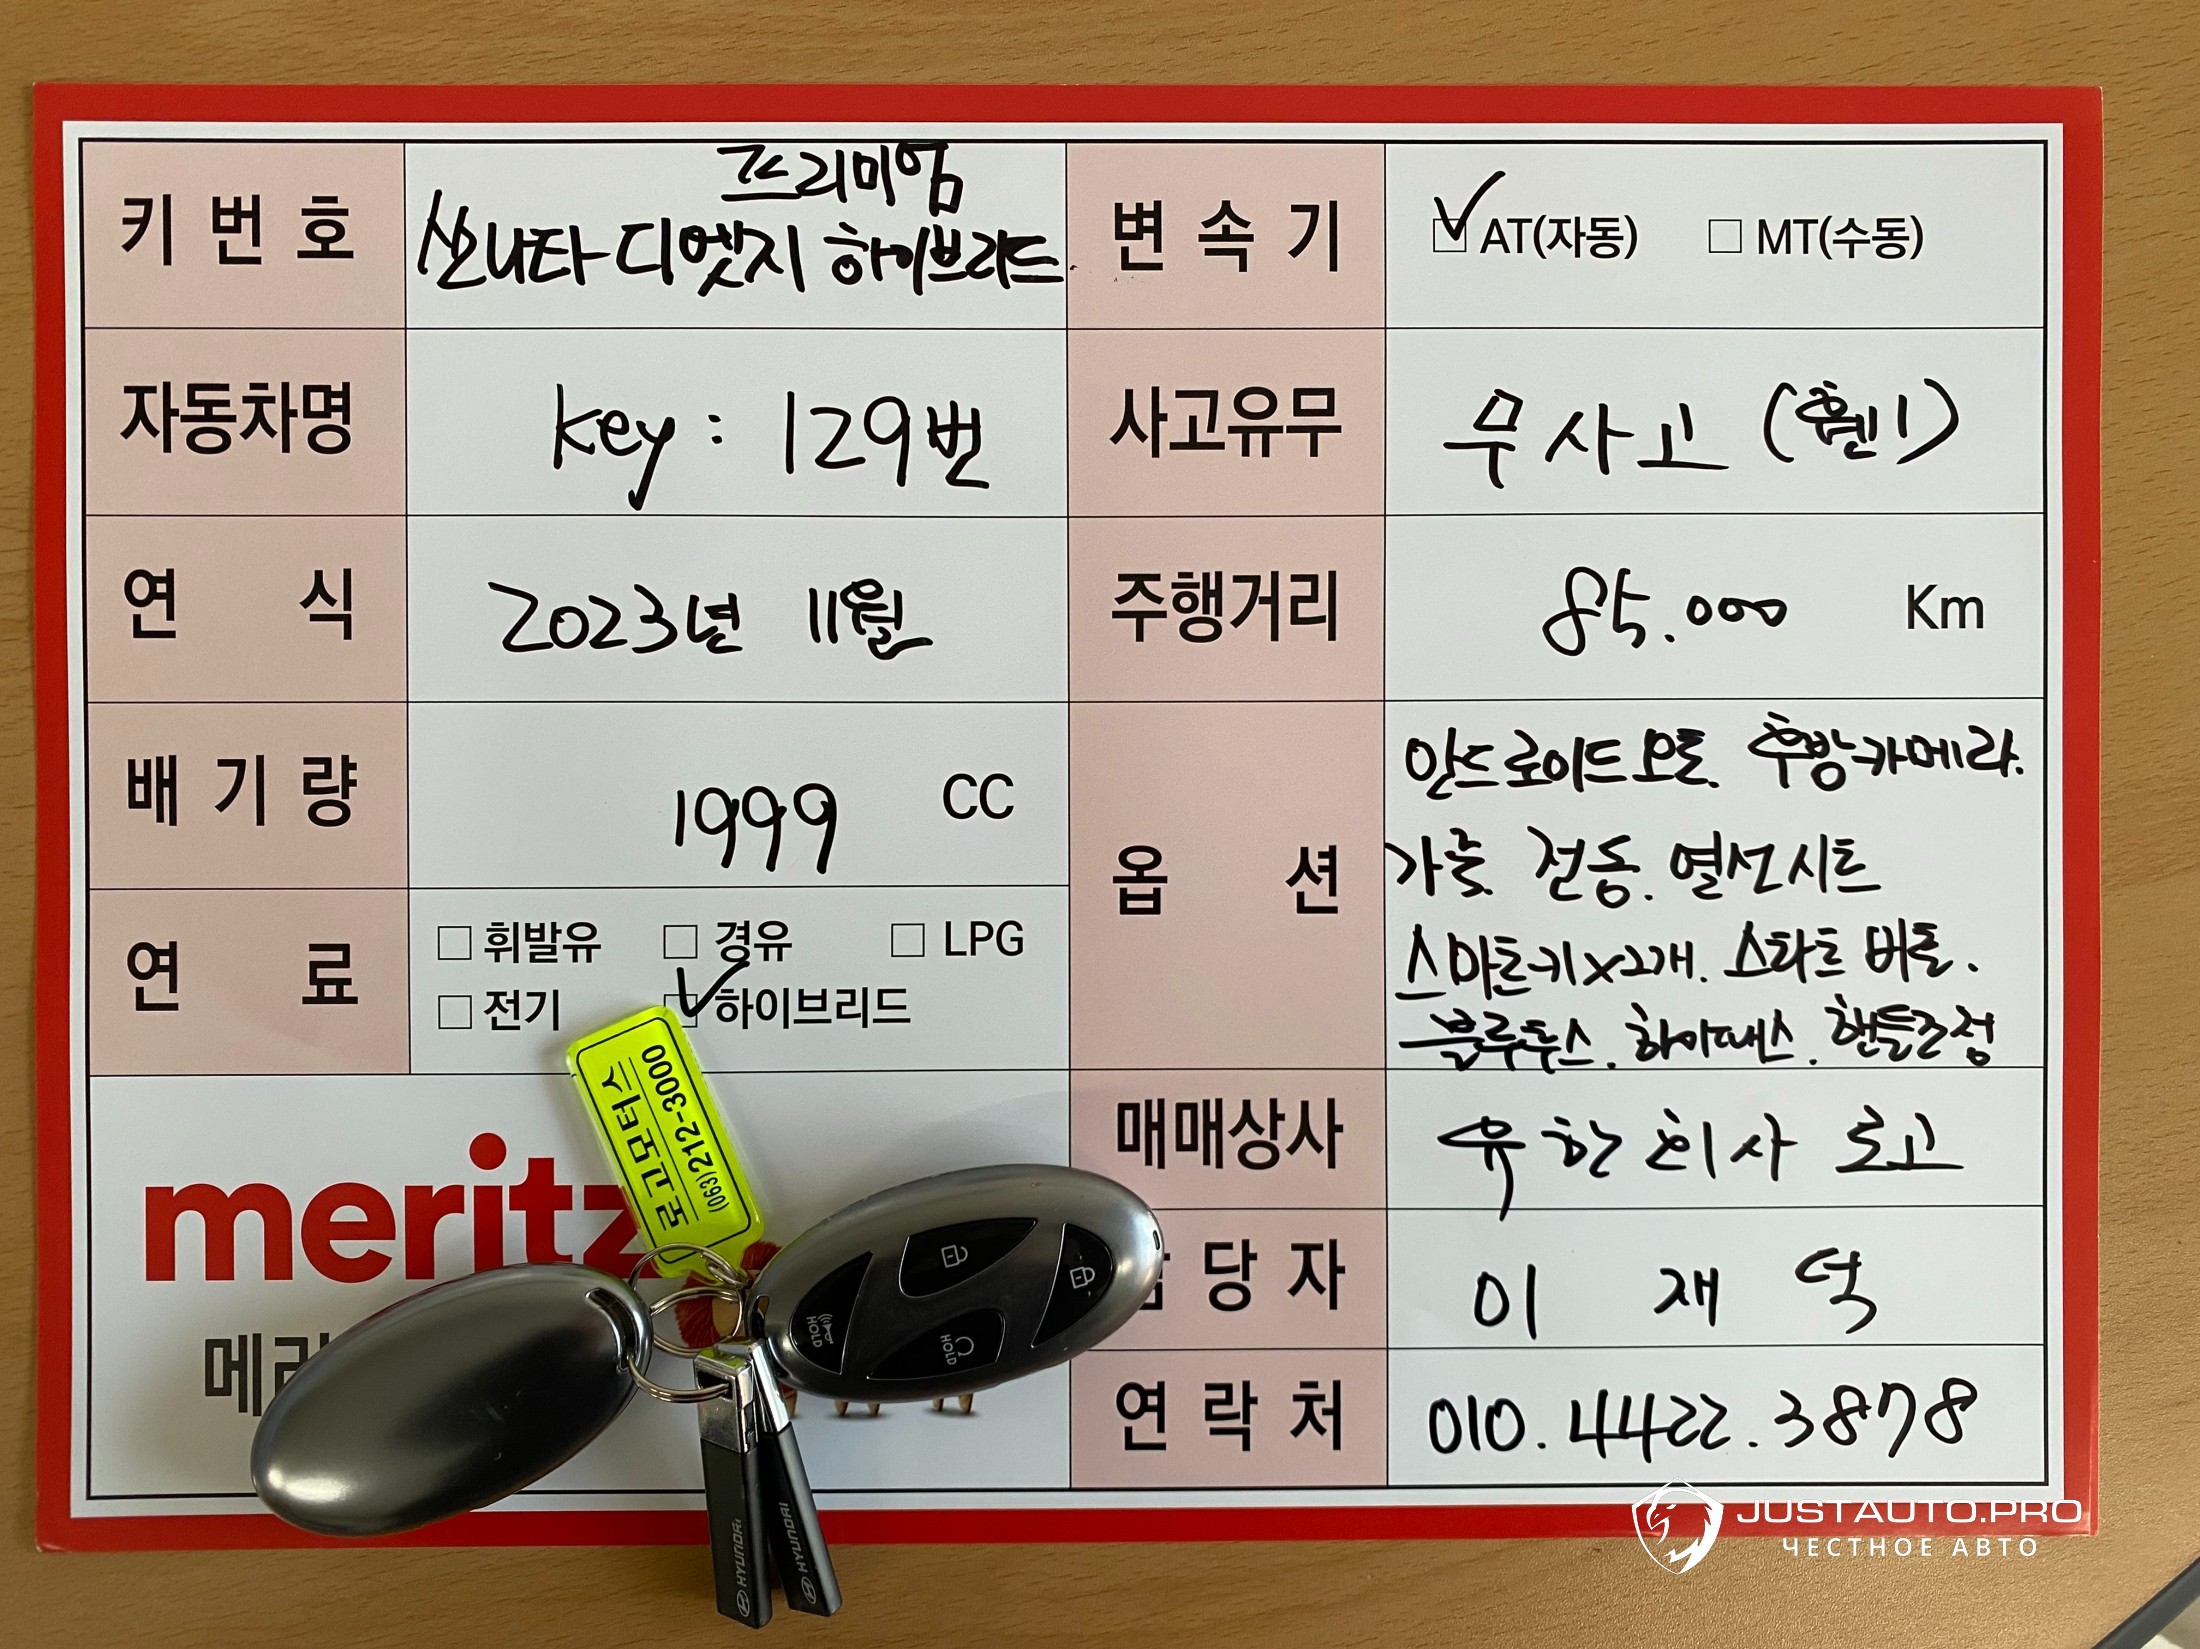 키 번 호
프리미엄
쏘나타 디엣지 하이브리드
변 속 기
AT(자동) MT(수동)
자동차명
key : 129번
사고유무
무사고 (휀1)
연 식
2023년 11월
주행거리
85.000 Km
배 기 량
1999 CC
옵 션
안드로이드오토. 후방카메라.
가죽. 전동. 열선시트
스마트키x2개. 스타트 버튼.
블루투스. 하이패스. 핸들조정
연 료
휘발유 경유 LPG
전기 하이브리드
매매상사
유한회사 로고
당 자
이 재 덕
연 락 처
010.4422.3878
meritz
메리
로고모터스
(063)212-3000
HOLD
HOLD
HYUNDAI
HYUNDAI
JUSTAUTO.PRO
ЧЕСТНОЕ АВТО